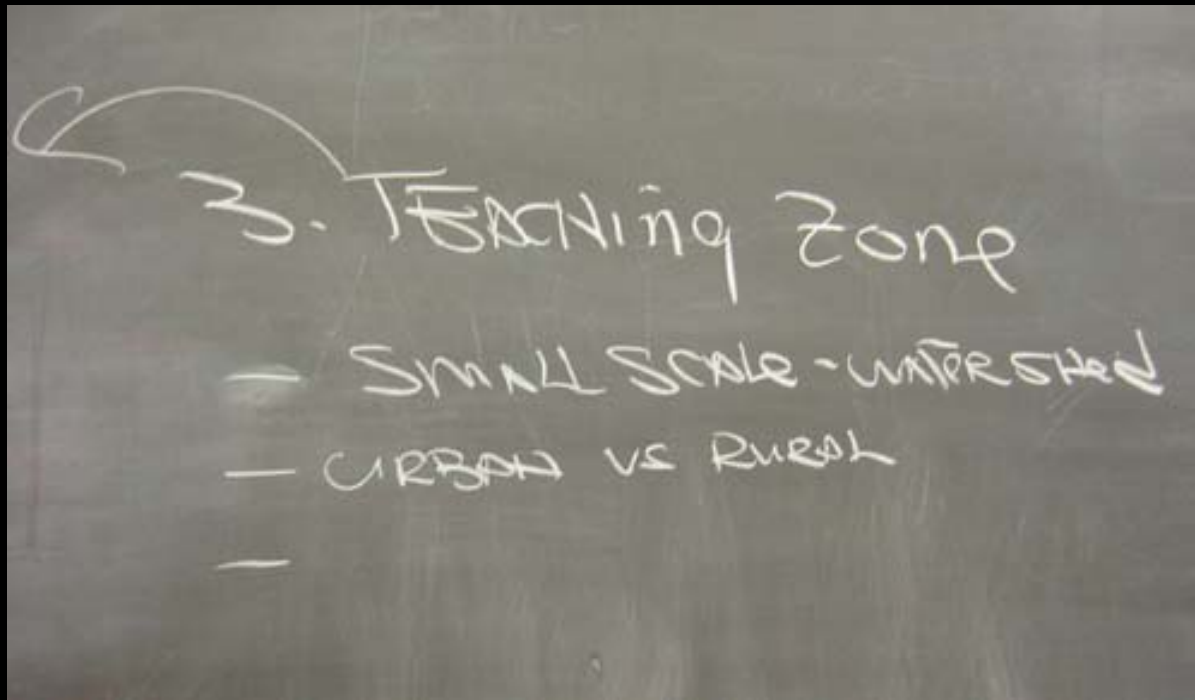 3. TEACHing Zone
- SMALL SCALe - WATeRSHeD
- URBAN VS RURAL
-